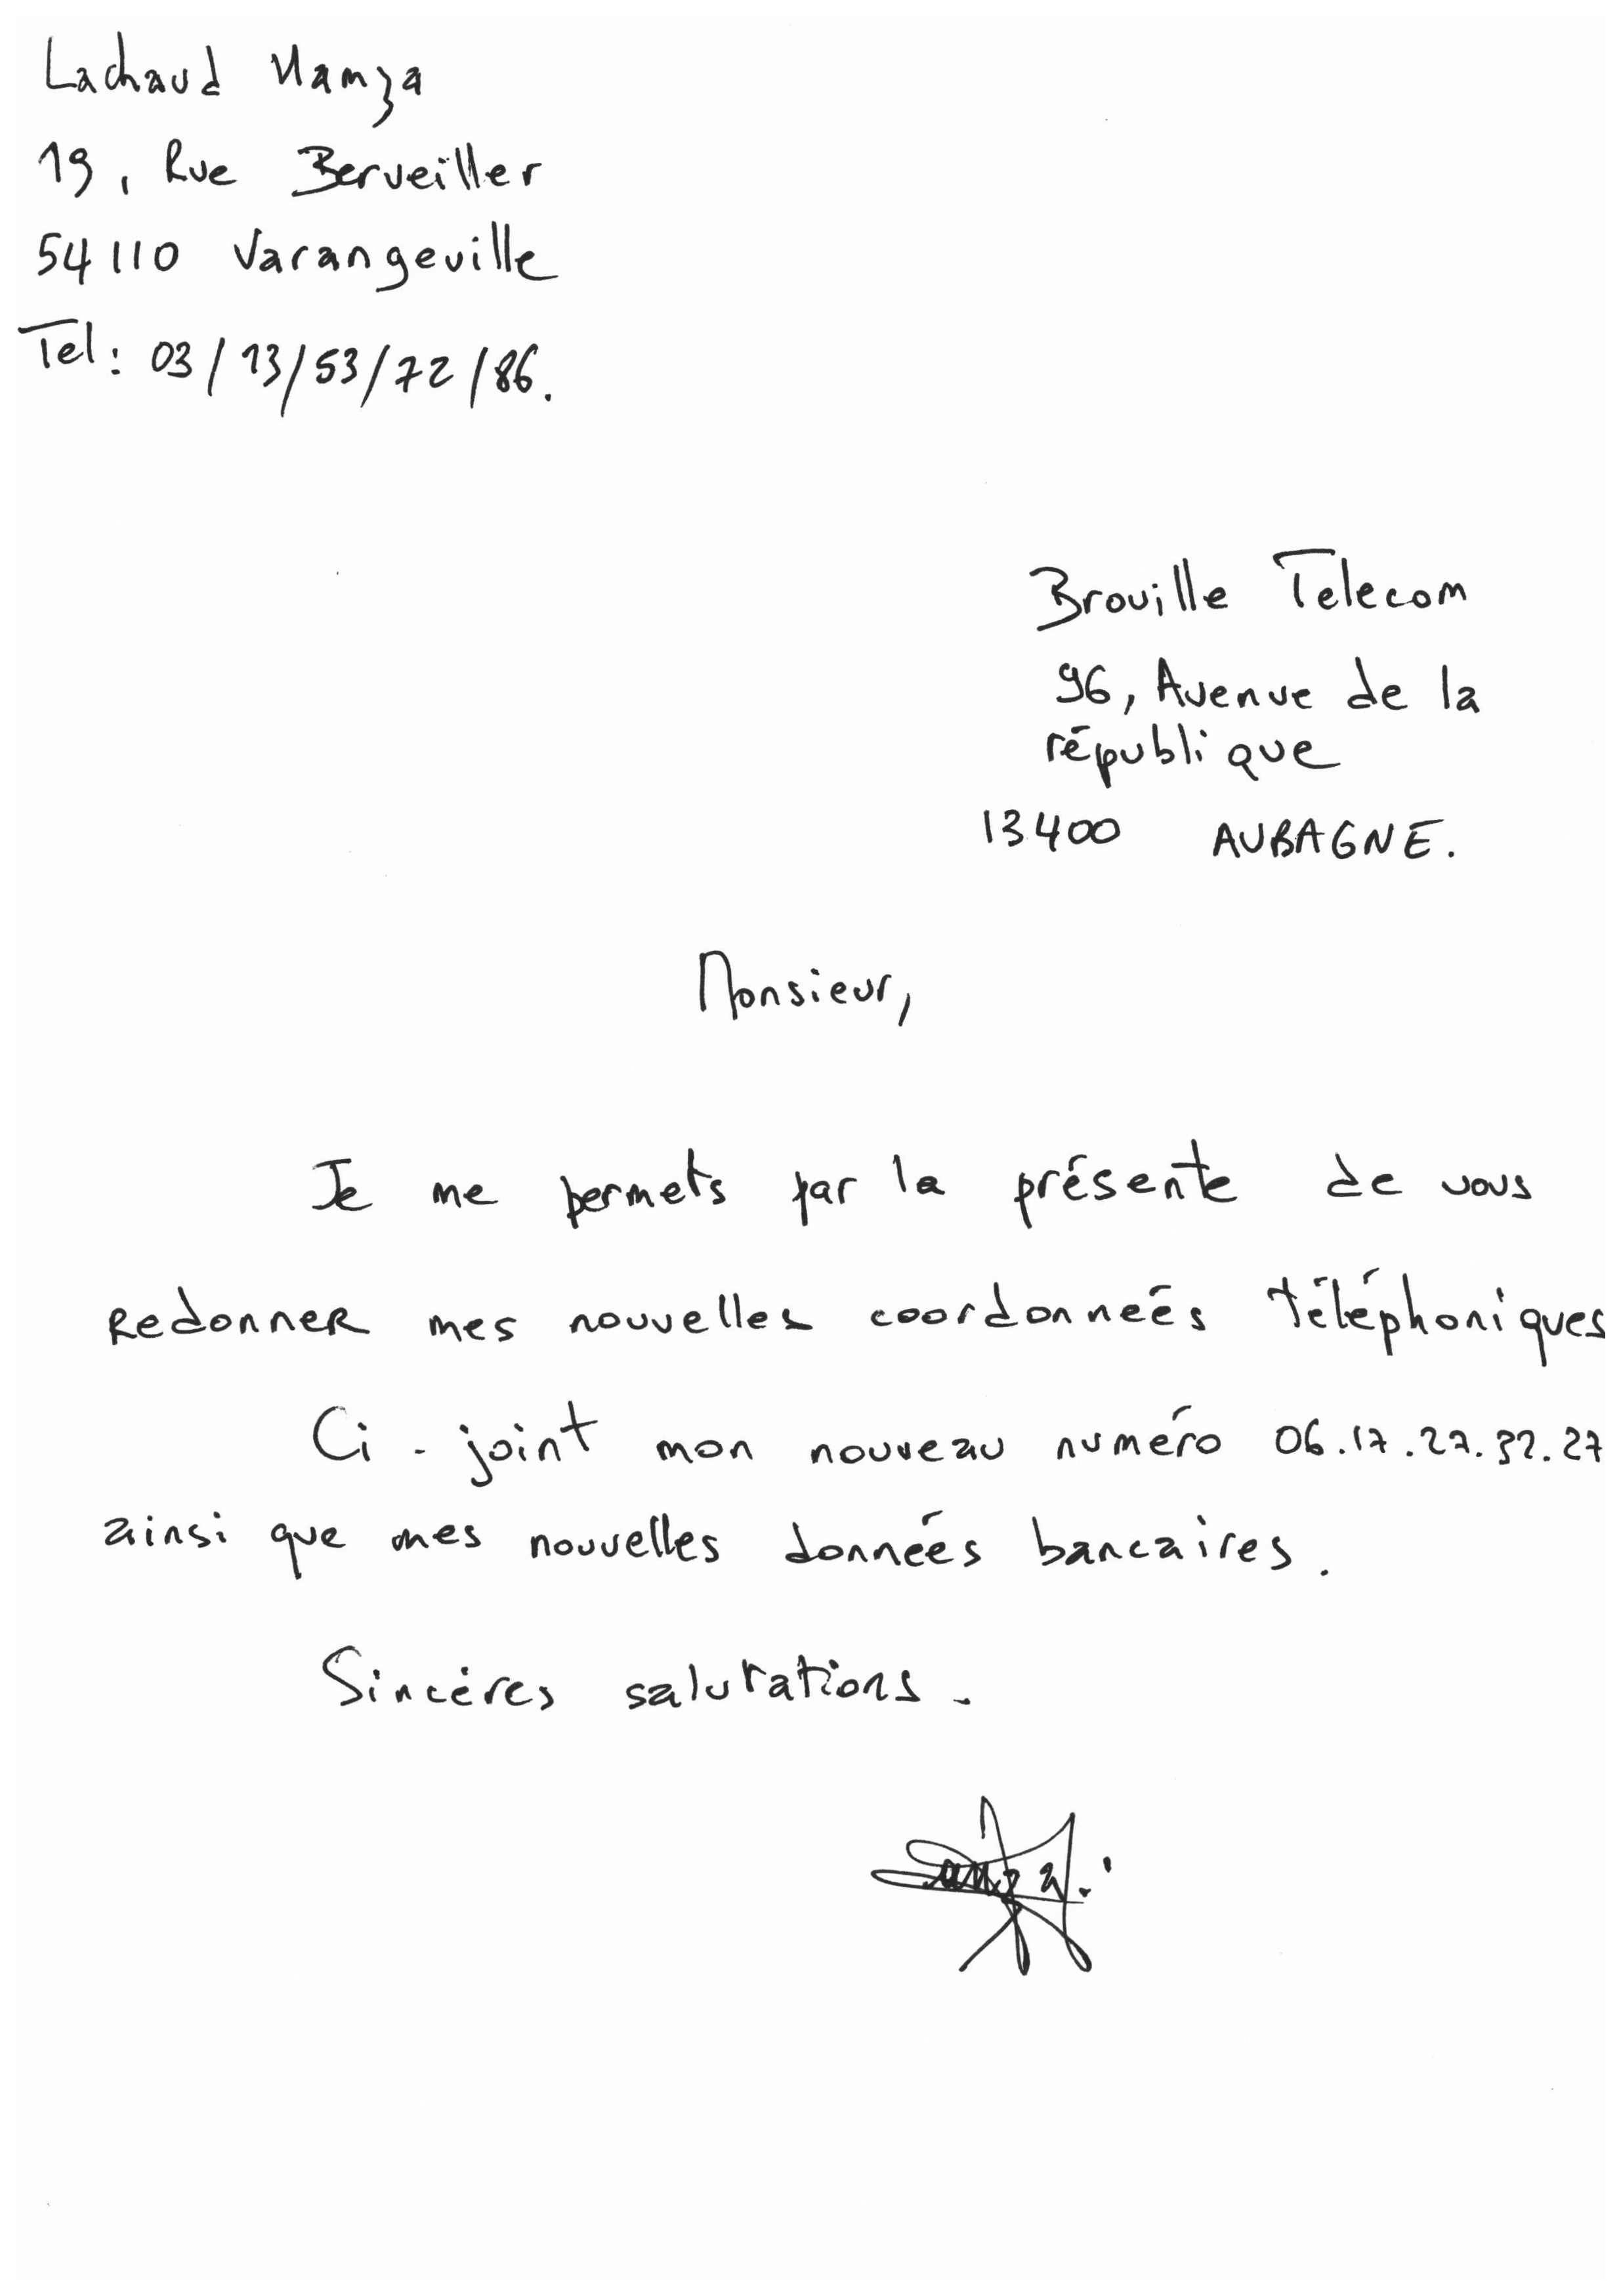 Lachaud Hamza
19, Rue Berveiller
54110 Varangeville
Tel: 03/13/53/72/86.
Brouille Telecom
96, Avenue de la
république
13400 AUBAGNE.
Monsieur,
Je me permets par la présente de vous
redonner mes nouvelles coordonneés téléphoniques
Ci-joint mon nouveau numéro 06.17.27.32.27
ainsi que mes nouvelles donneés bancaires.
Sincéres salutations.